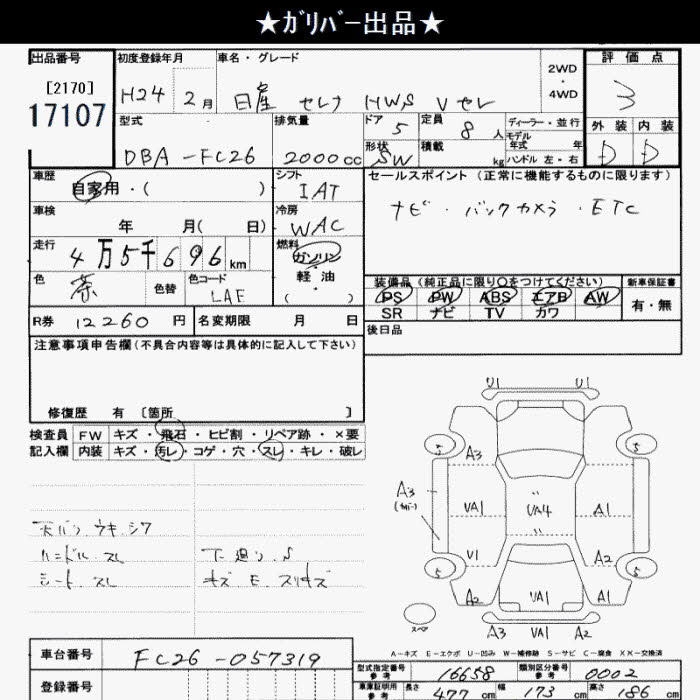 ★ｶﾞﾘﾊﾞｰ出品★
出品番号
[2170]
17107
初度登録年月
H24 2月
車名・グレード
日産 セレナ HWS Vセレ
2WD
・
4WD
評価点
3
外装 内装
D D
型式
DBA-FC26
排気量
2000cc
ドア
5
定員
8人
形状
SW
積載
kg
ディーラー・並行
モデル
年式 年
ハンドル 左・右
車歴
自家用・( )
シフト
IAT
車検
年 月( 日)
冷房
WAC
走行
4万5千696km
燃料
ガソリン
軽・油
( )
色
茶
色替
色コード
LAE
セールスポイント (正常に機能するものに限ります)
ナビ・バックカメラ・ETC
装備品(純正品に限り○をつけてください)
PS PW ABS エアB AW
SR ナビ TV カワ
新車保証書
有・無
R券 12260円
名変期限 月 日
後日品
注意事項申告欄(不具合内容等は具体的に記入して下さい)
修復歴 有 〔箇所 〕
検査員
記入欄
FW キズ・飛石・ヒビ割・リペア跡・×要
内装 キズ・汚レ・コゲ・穴・スレ・キレ・破レ
天バリ ウキ.シワ
ハンドル.スレ
シート.スレ
下廻り.S
キズ E.スリキズ
U1 U1
5 5
A3
A3
(カバー)
UA1 UA4 A1
V1 A2
5 5
A2 UA1 A1
スペア
A3 UA1 A2
A－キズ E－エクボ U－凹み W－補修跡 S－サビ C－腐食 XX－交換済
車台番号
FC26-057319
登録番号
型式指定番号
参考
16658
類別区分番号
参考
0002
車庫証明用
参考
長さ 477cm
幅 173cm
高さ 186cm